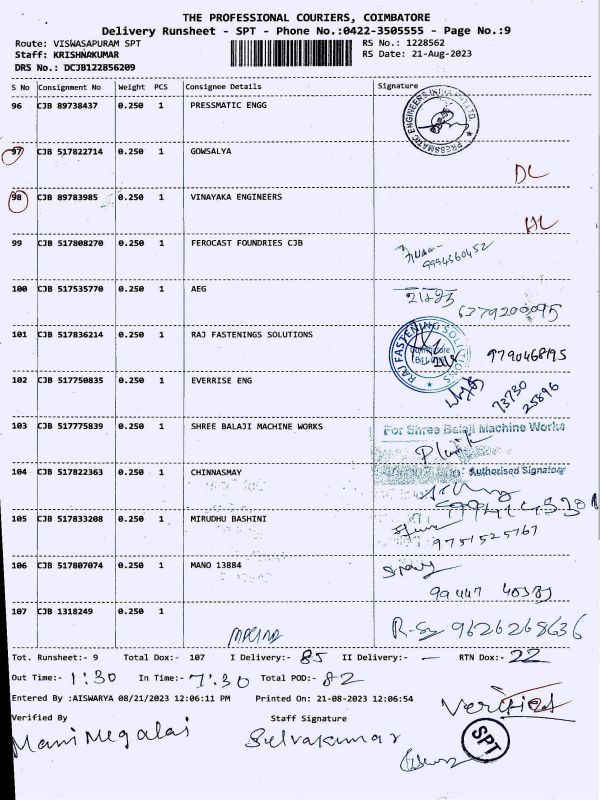 THE PROFESSIONAL COURIERS, COIMBATORE
Delivery Runsheet - SPT - Phone No.:0422-3505555 - Page No.:9
Route: VISWASAPURAM SPT RS No.: 1228562
Staff: KRISHNAKUMAR RS Date: 21-Aug-2023
DRS No.: DCJB122856209
S No Consignment No Weight PCS Consignee Details Signature
96 CJB 89738437 0.250 1 PRESSMATIC ENGG
PRESSMATIC ENGINEERS LTD.
97 CJB 517822714 0.250 1 GOWSALYA
DL
98 CJB 89783985 0.250 1 VINAYAKA ENGINEERS
HL
99 CJB 517808270 0.250 1 FEROCAST FOUNDRIES CJB
9994360452
100 CJB 517535770 0.250 1 AEG
6379200095
101 CJB 517836214 0.250 1 RAJ FASTENINGS SOLUTIONS
RAJ FASTENING SOLUTIONS
9790468195
102 CJB 517750835 0.250 1 EVERRISE ENG
73730
25896
103 CJB 517775839 0.250 1 SHREE BALAJI MACHINE WORKS
For Shree Balaji Machine Works
Authorised Signatory
104 CJB 517822363 0.250 1 CHINNASMAY
105 CJB 517833208 0.250 1 MIRUDHU BASHINI
9751525767
106 CJB 517807074 0.250 1 MANO 13884
99447
107 CJB 1318249 0.250 1
9626268636
Tot. Runsheet:- 9 Total Dox:- 107 I Delivery:- 85 II Delivery:- - RTN Dox:- 22
Out Time:- 1:30 In Time:- 7:30 Total POD:- 82
Entered By :AISWARYA 08/21/2023 12:06:11 PM Printed On: 21-08-2023 12:06:54
Verified
Verified By Staff Signature
SPT
Manimegalai Selvakumar